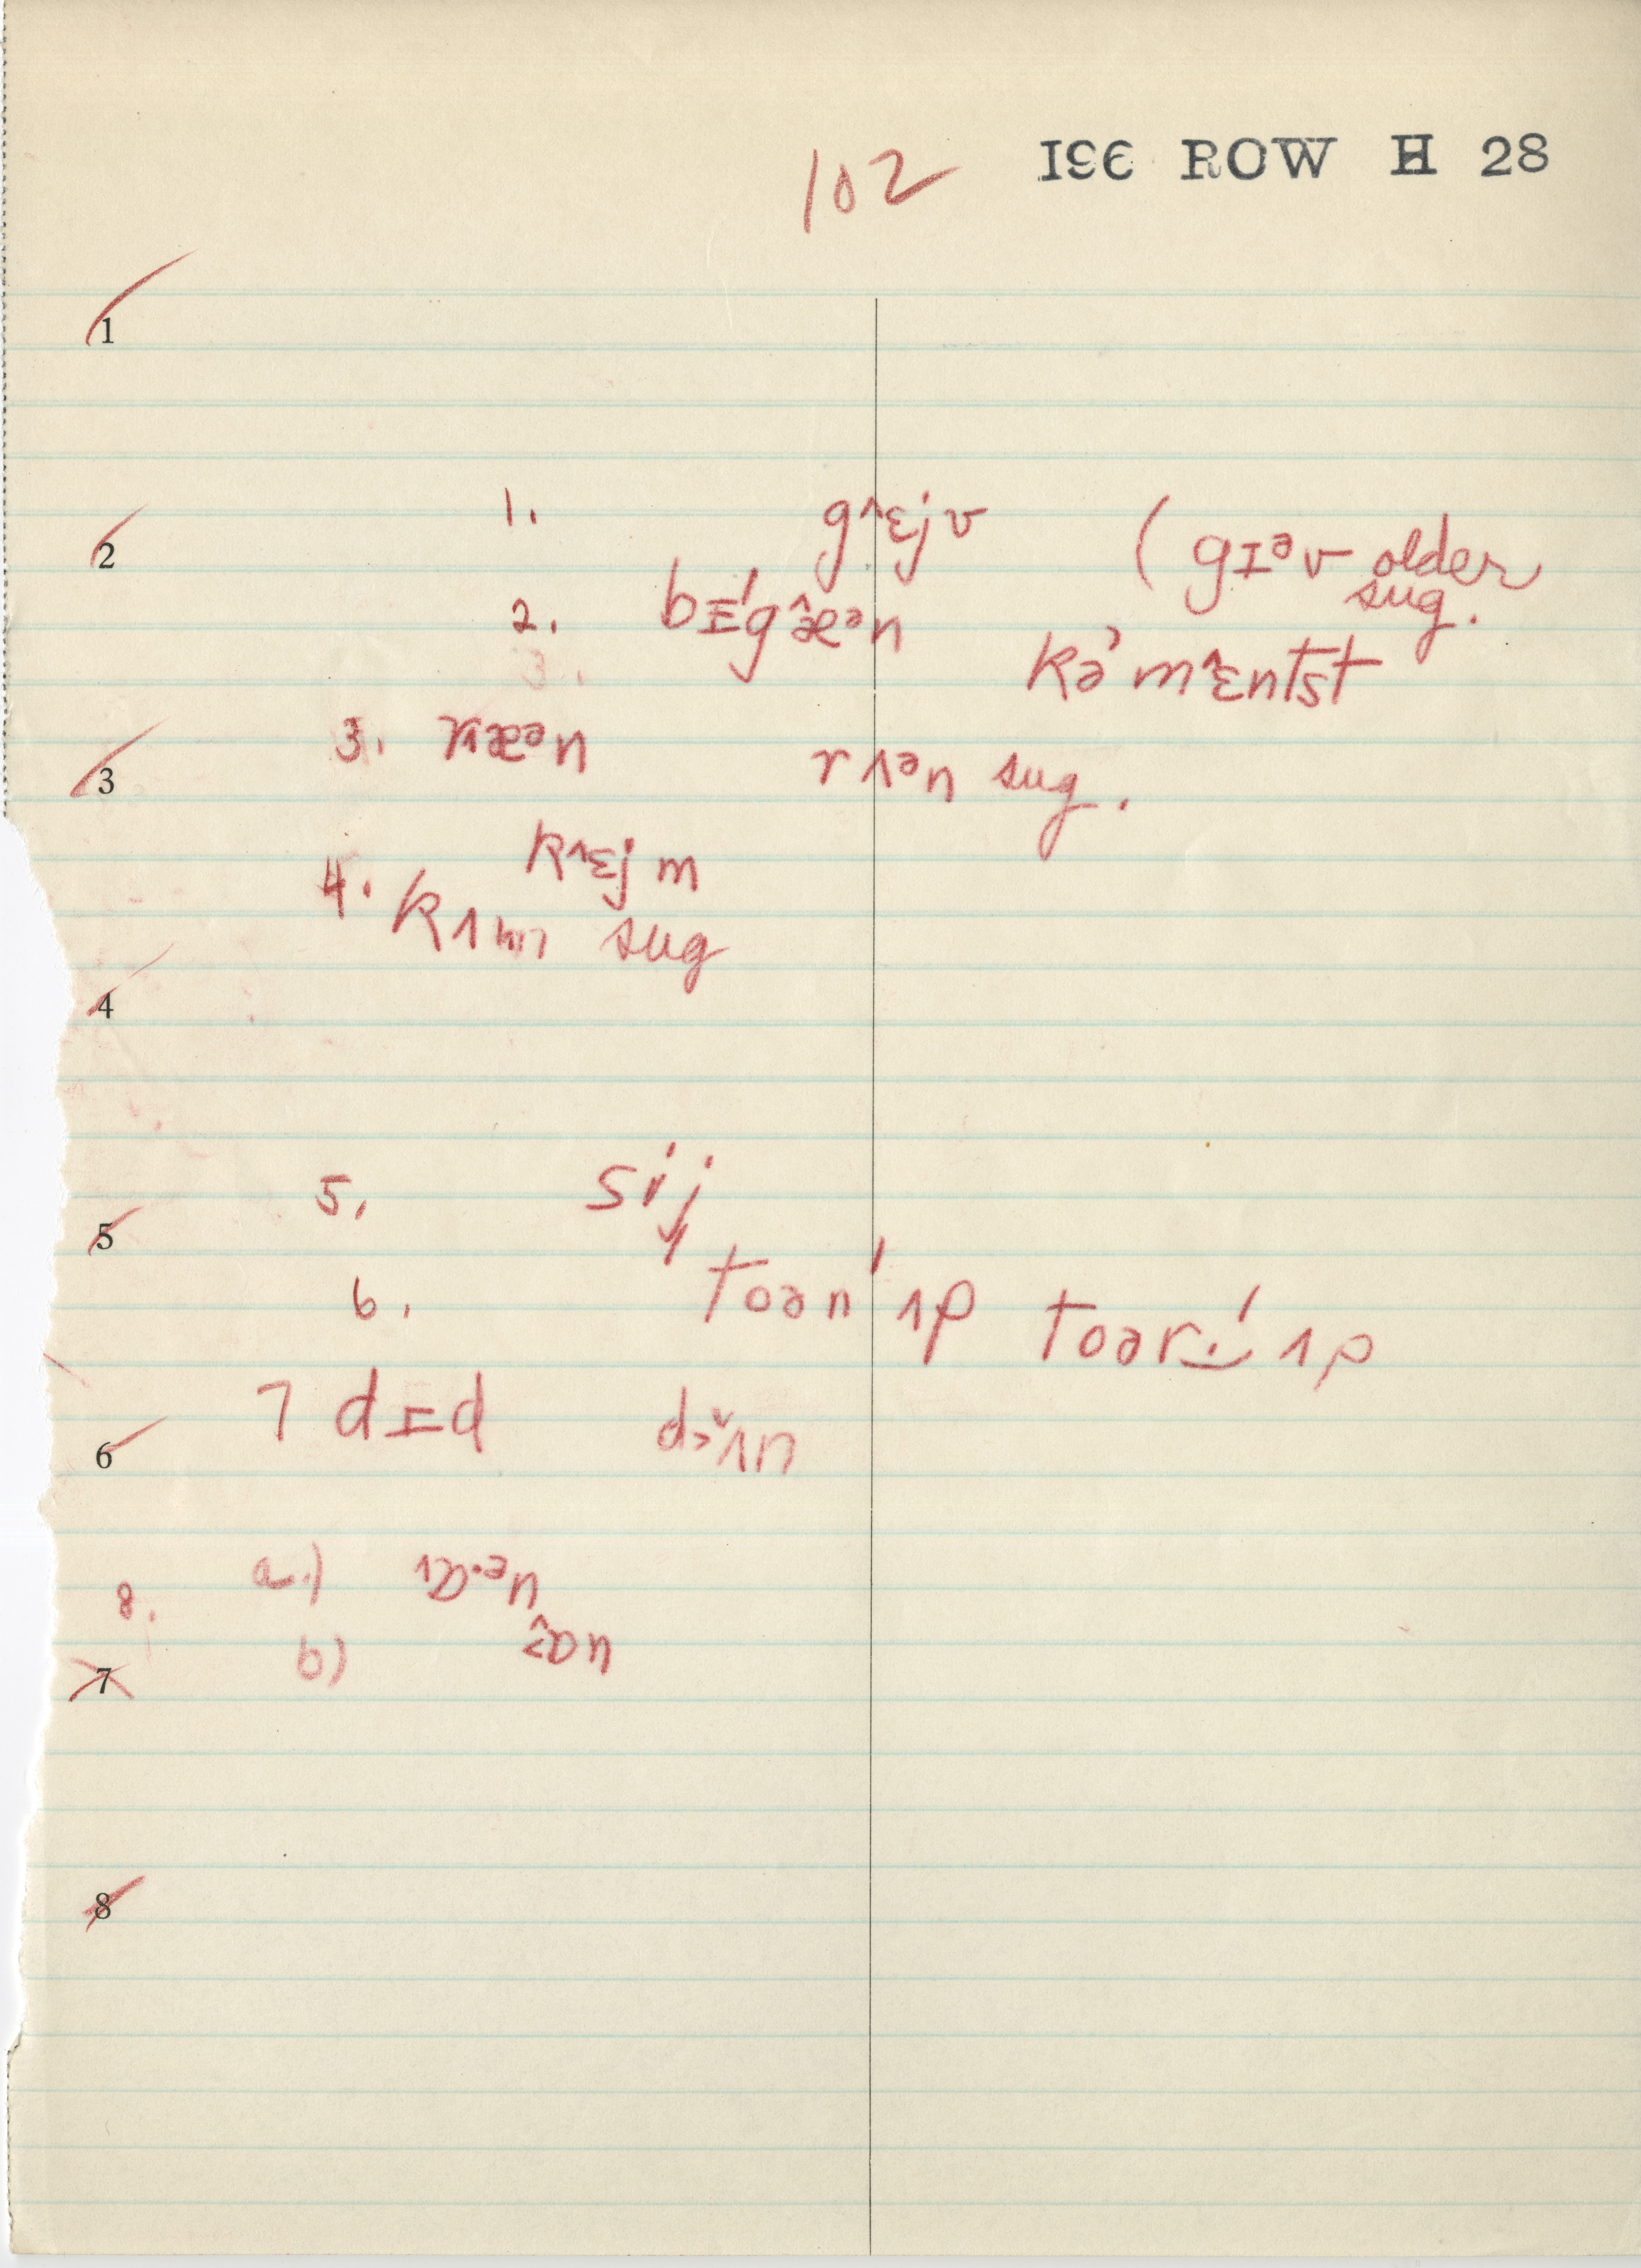 102 196 ROW H 28
1
1. g˄ɛjv (gɪᵊv older
2 sug.
2. bɪ́gæ̂ᵊn
kə'mɛ̂ntst
3. r˄æᵊn
3 rʌᵊn sug.
k˄ɛjm
4. kʌm sug
4
5. sij
5
6. toən'ʌp toər'ʌp
7 dɪd dʌn
6
8. a.) ɒ·ᵊn
b) ɒ̂n
7
8